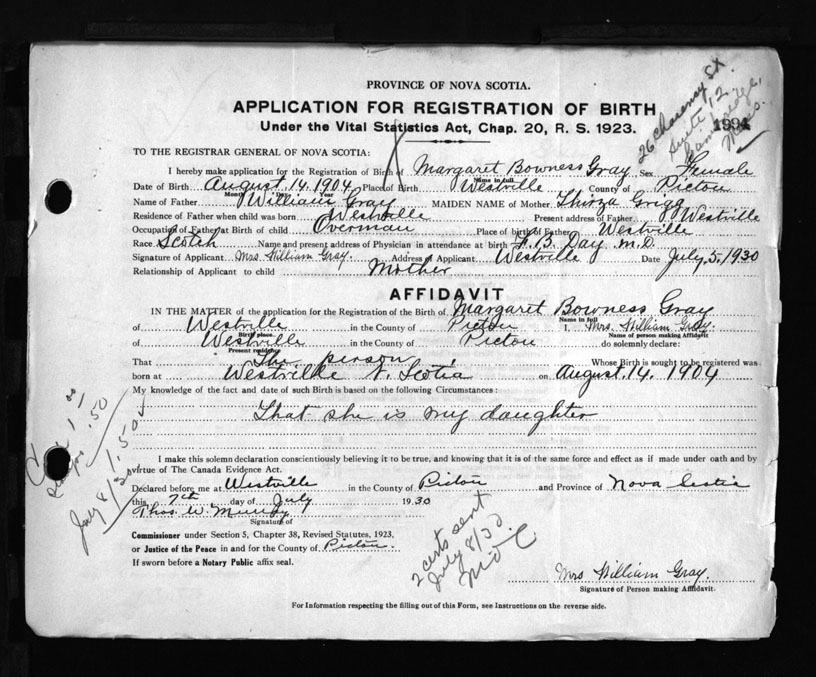 PROVINCE OF NOVA SCOTIA.
APPLICATION FOR REGISTRATION OF BIRTH
Under the Vital Statistics Act, Chap. 20, R. S. 1923.
Suite 12
Cambridge,
Mass.
TO THE REGISTRAR GENERAL OF NOVA SCOTIA:
I hereby make application for the Registration of Birth of Margaret Bowness Gray Sex Female
Name in full
Date of Birth August 14. 1904 Place of Birth Westville County of Pictou
Month Day Year
Name of Father William Gray MAIDEN NAME of Mother Thirza Grigg
Residence of Father when child was born Westville Present address of Father Westville
Occupation of Father at Birth of child Overman Place of birth of Father Westville
Race Scotch Name and present address of Physician in attendance at birth F. B. Day M.D.
Signature of Applicant Mrs William Gray. Address of Applicant Westville Date July. 5. 1930
Relationship of Applicant to child Mother
AFFIDAVIT
IN THE MATTER of the application for the Registration of the Birth of Margaret Bowness Gray
Name in full
of Westville in the County of Pictou I, Mrs. William Gray.
Birth place Name of person making Affidavit
of Westville in the County of Pictou do solemnly declare:
Present residence
That The person Whose Birth is sought to be registered was
born at Westville N. Scotia on August. 14. 1904
My knowledge of the fact and date of such Birth is based on the following Circumstances:
That she is my daughter
I make this solemn declaration conscientiously believing it to be true, and knowing that it is of the same force and effect as if made under oath and by
virtue of The Canada Evidence Act.
Declared before me at Westville in the County of Pictou and Province of Nova Scotia
this 7th day of July 1930
Thos. W. Murray
Signature of
Commissioner under Section 5, Chapter 38, Revised Statutes, 1923,
or Justice of the Peace in and for the County of Pictou
If sworn before a Notary Public affix seal.
2 certs sent
July 8/30
Mrs William Gray.
Signature of Person making Affidavit.
For Information respecting the filling out of this Form, see Instructions on the reverse side.
.50
1.50
July 8/30